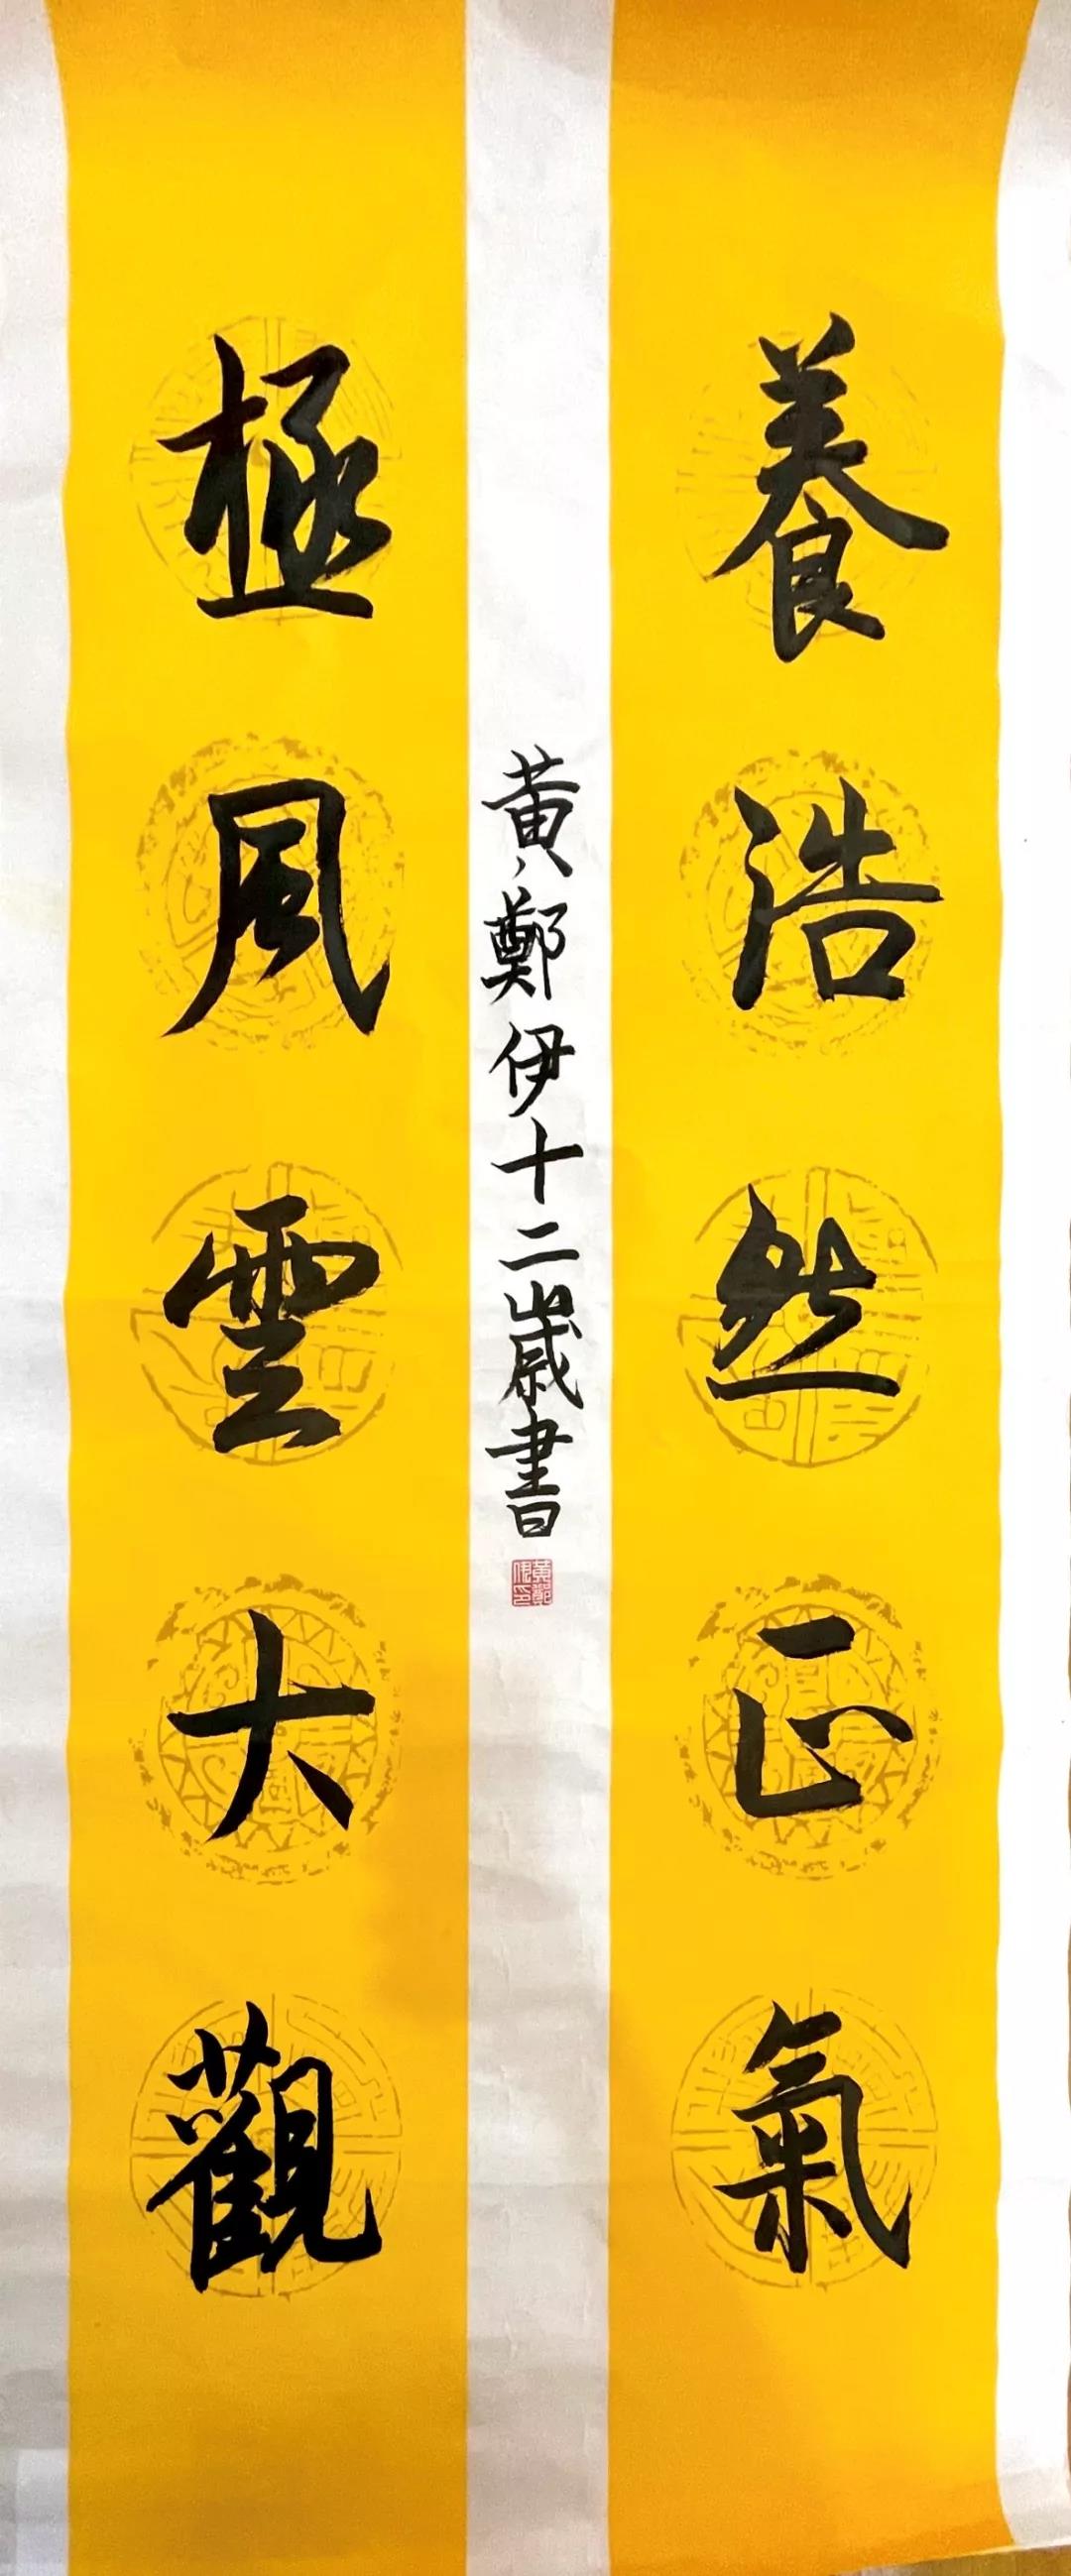 養浩然正氣
極風雲大觀
黃鄭伊十二歲書